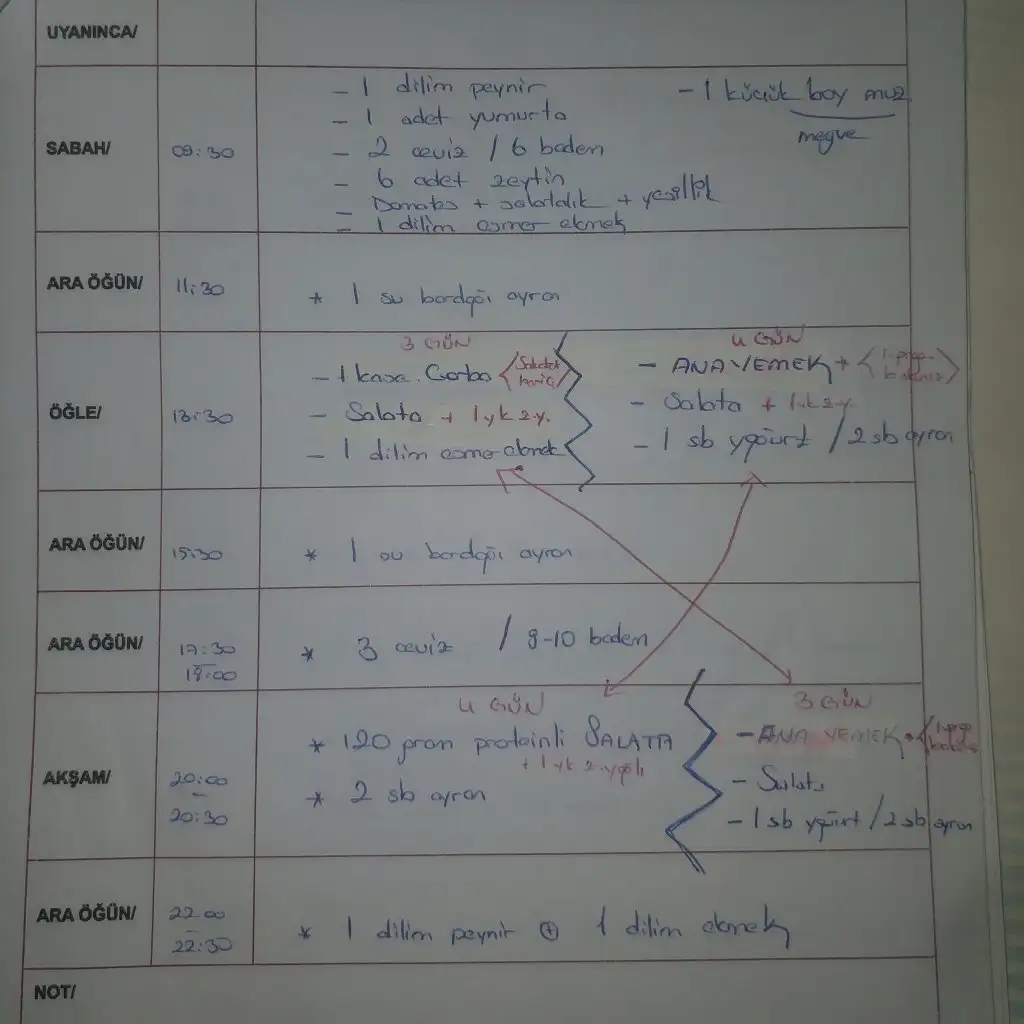 UYANINCA/
SABAH/
09:30
- 1 dilim peynir
- 1 adet yumurta
- 2 ceviz / 6 badem
- 6 adet zeytin
- Domates + salatalık + yeşillik
- 1 dilim esmer ekmek
- 1 küçük boy muz
meyve
ARA ÖĞÜN/
11:30
* 1 su bardağı ayran
ÖĞLE/
13:30
3 GÜN
- 1 kase Çorba
- Salata + 1 yk z.y.
- 1 dilim esmer ekmek
4 GÜN
- ANA YEMEK +
- Salata + 1 yk z.y.
- 1 sb yoğurt / 2 sb ayran
ARA ÖĞÜN/
15:30
* 1 su bardağı ayran
ARA ÖĞÜN/
17:30
* 3 ceviz / 9-10 badem
AKŞAM/
20:00
-
20:30
4 GÜN
* 120 gram proteinli SALATA
+ 1 yk z.yağlı
* 2 sb ayran
3 GÜN
- ANA YEMEK +
- Salata
- 1 sb yoğurt / 2 sb ayran
ARA ÖĞÜN/
22:00
-
22:30
* 1 dilim peynir + 1 dilim ekmek
NOT/